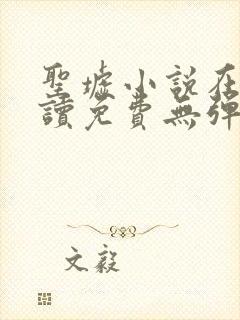 聖墟小說在
讀免費無彈
文毅